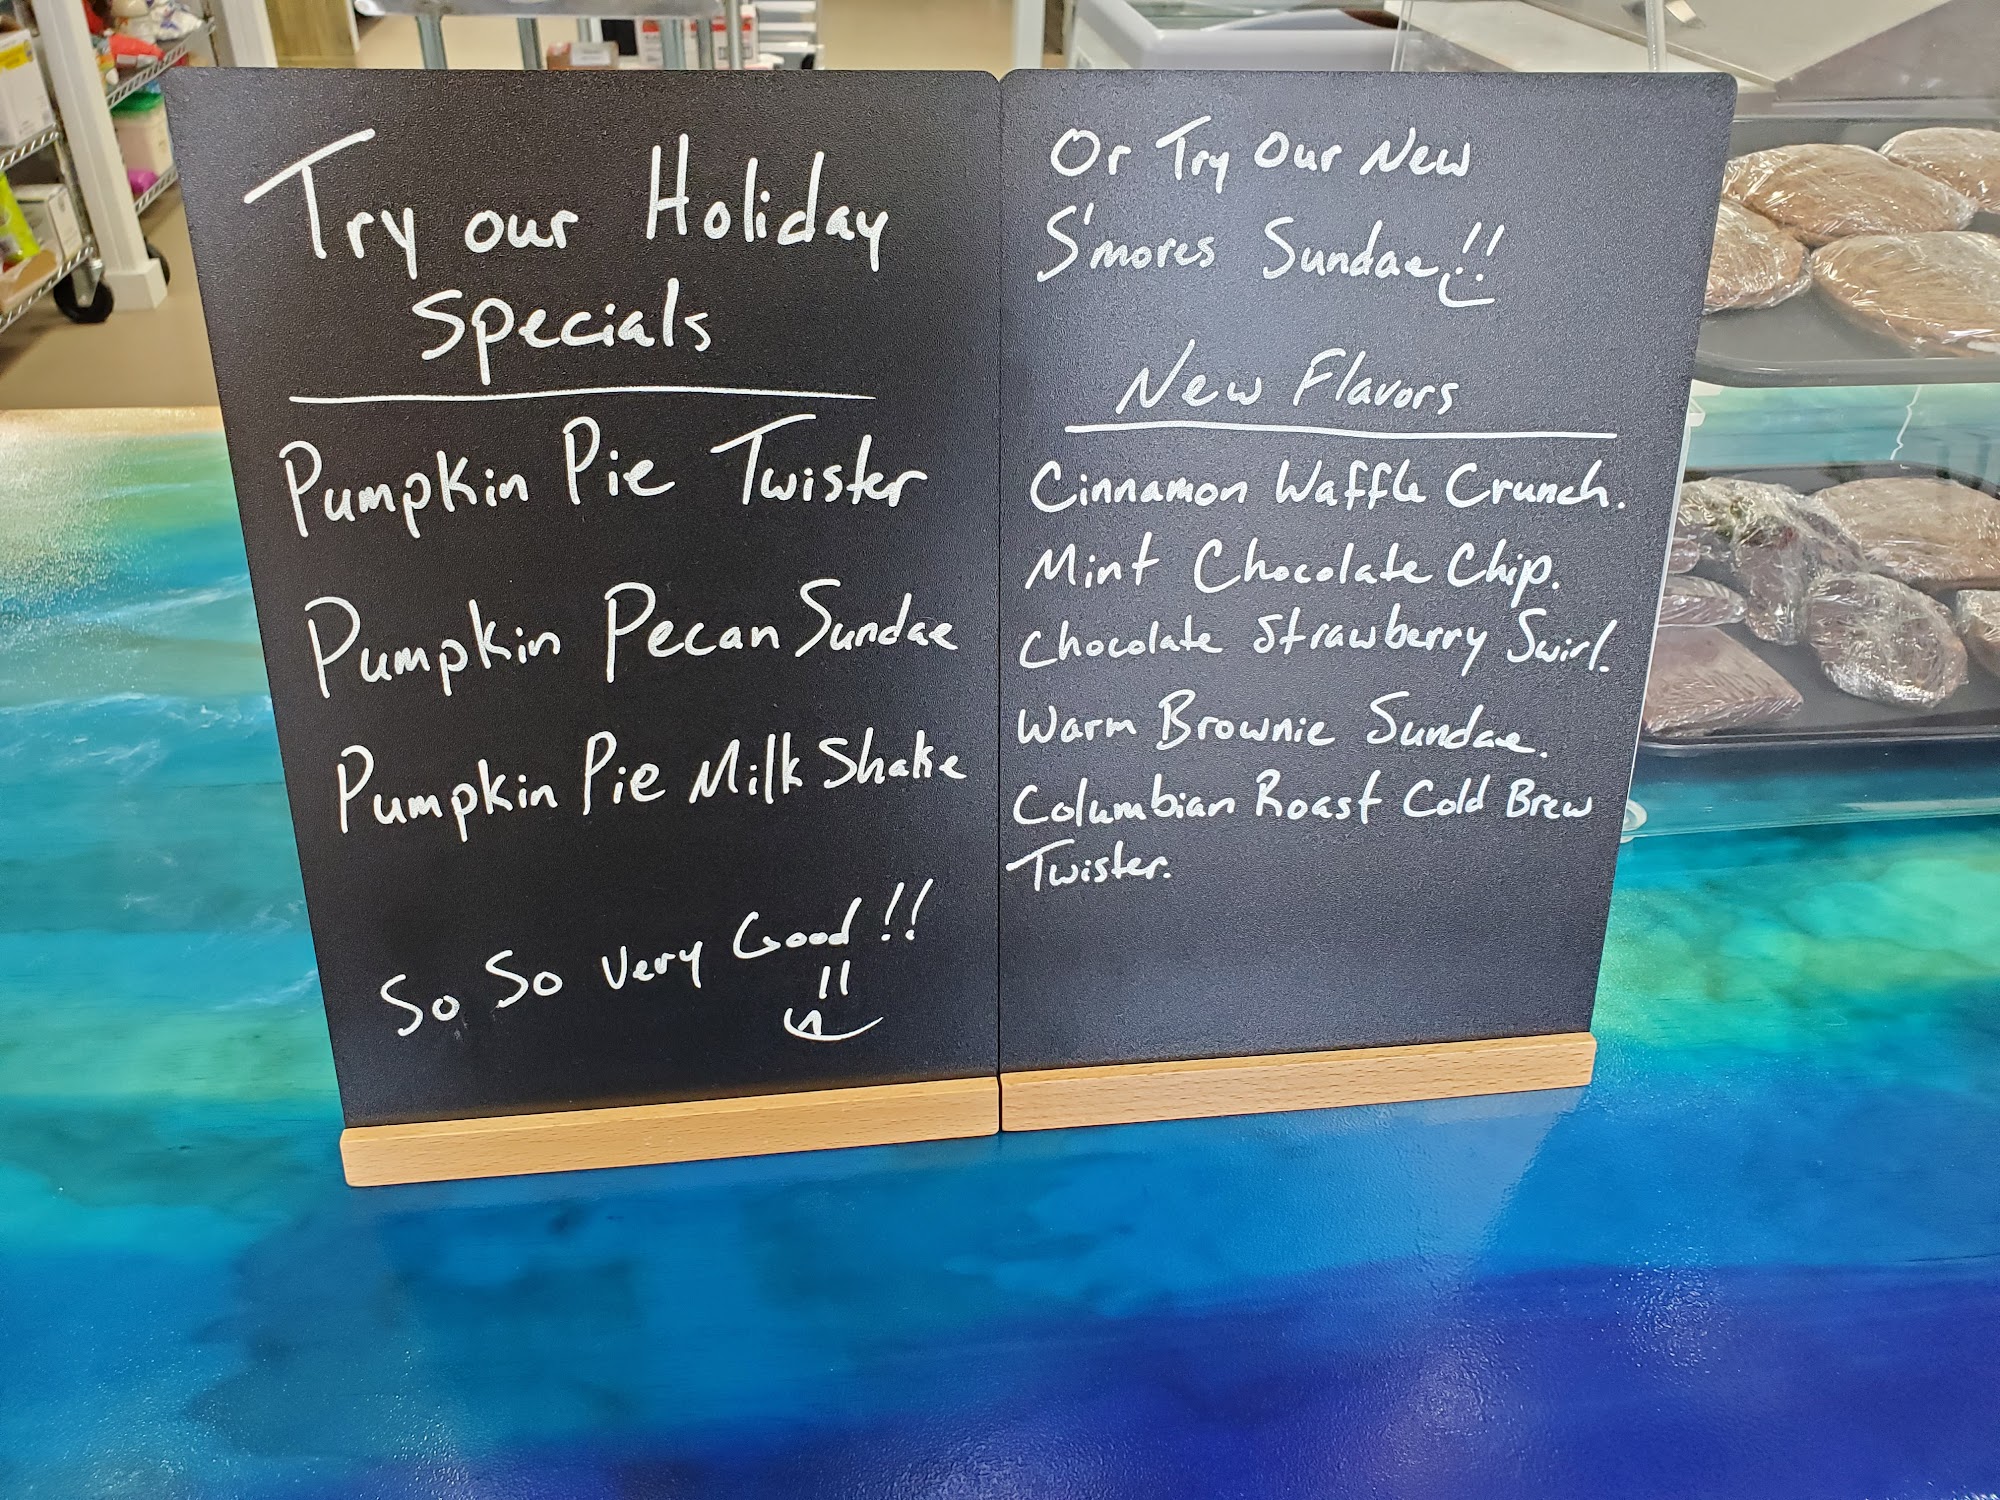 Try our Holiday
Specials
Pumpkin Pie Twister
Pumpkin Pecan Sundae
Pumpkin Pie Milk Shake
So So Very Good!!
Or Try Our New
S'mores Sundae!!
New Flavors
Cinnamon Waffle Crunch.
Mint Chocolate Chip.
Chocolate Strawberry Swirl.
Warm Brownie Sundae.
Columbian Roast Cold Brew
Twister.